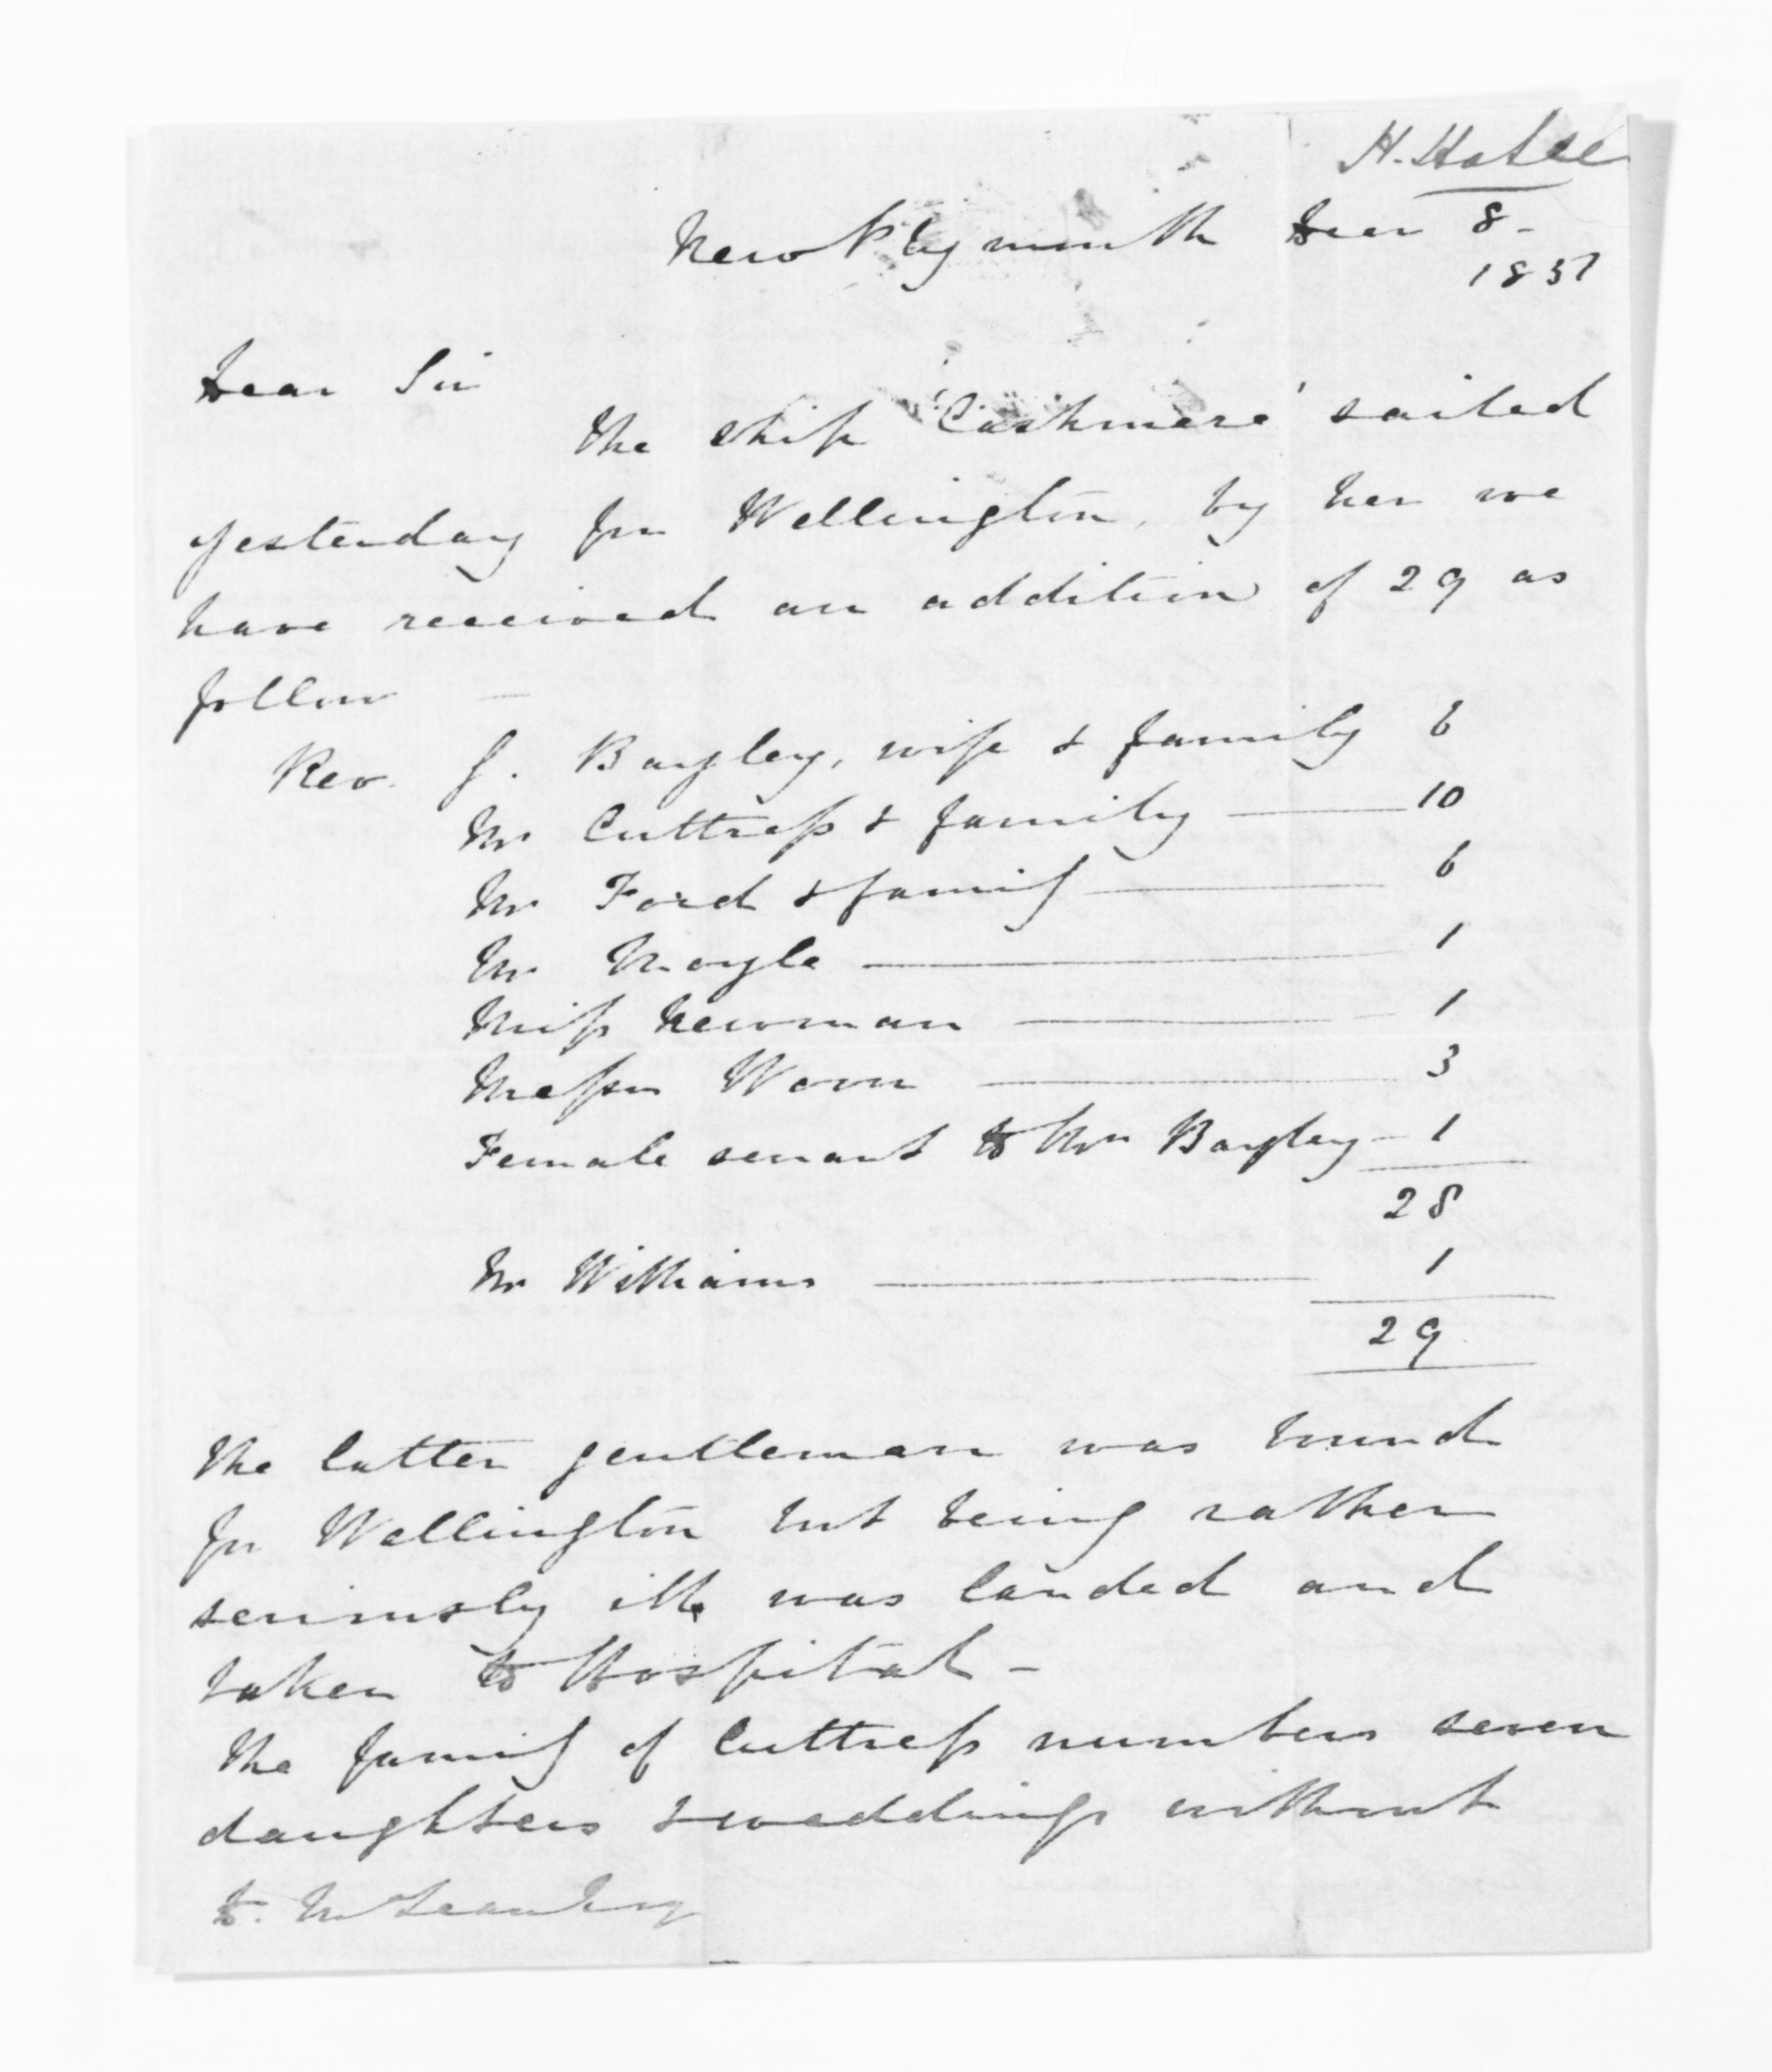 H. Halse
New Plymouth Decr 8 -
1851
Dear Sir
The ship 'Cashmere' sailed
yesterday for Wellington, by her we
have received an addition of 29 as
follow —
Rev. J. Bayley, wife & family 6
Mr Cuttress & family — 10
Mr Ford & family — 6
Mr Moyle — 1
Miss Newman — 1
Messrs Worn — 3
Female servant to Mrs Bayley — 1
28
Mr Williams — 1
29
The latter gentleman was bound
for Wellington but being rather
seriously ill, was landed and
taken to Hospital -
The family of Cuttress numbers seven
daughters & weddings without
D. McLean Esq